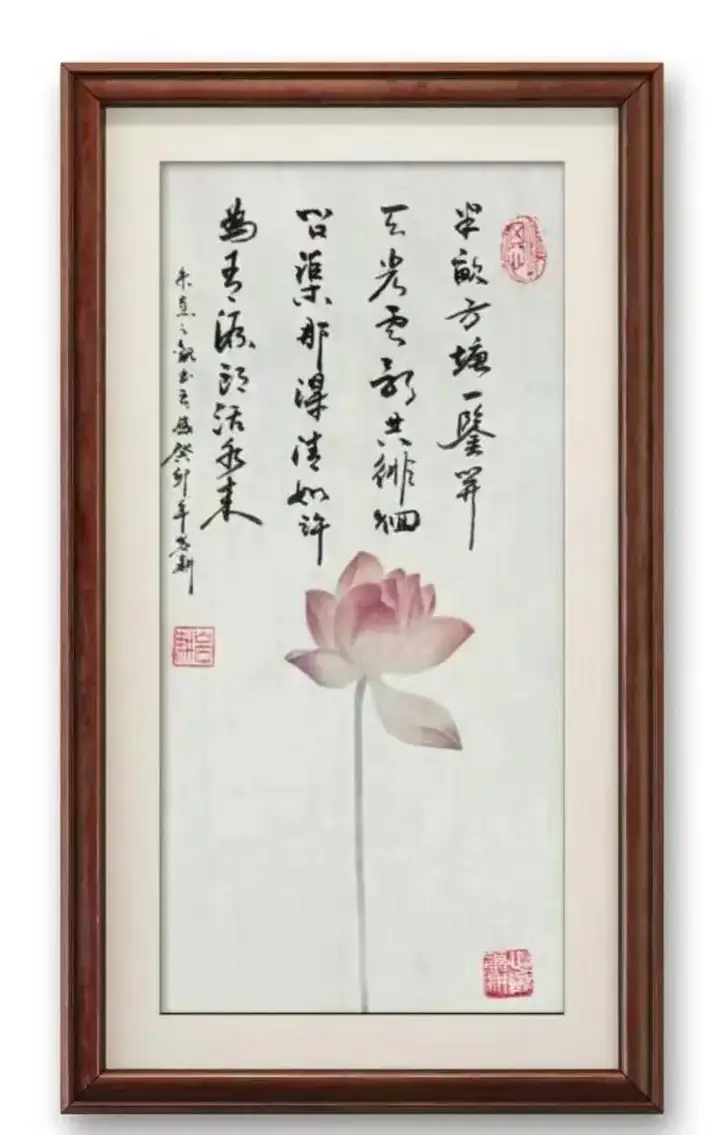 半畝方塘一鑒開
天光雲影共徘徊
問渠那得清如許
為有源頭活水來
朱熹之觀書有感癸卯年